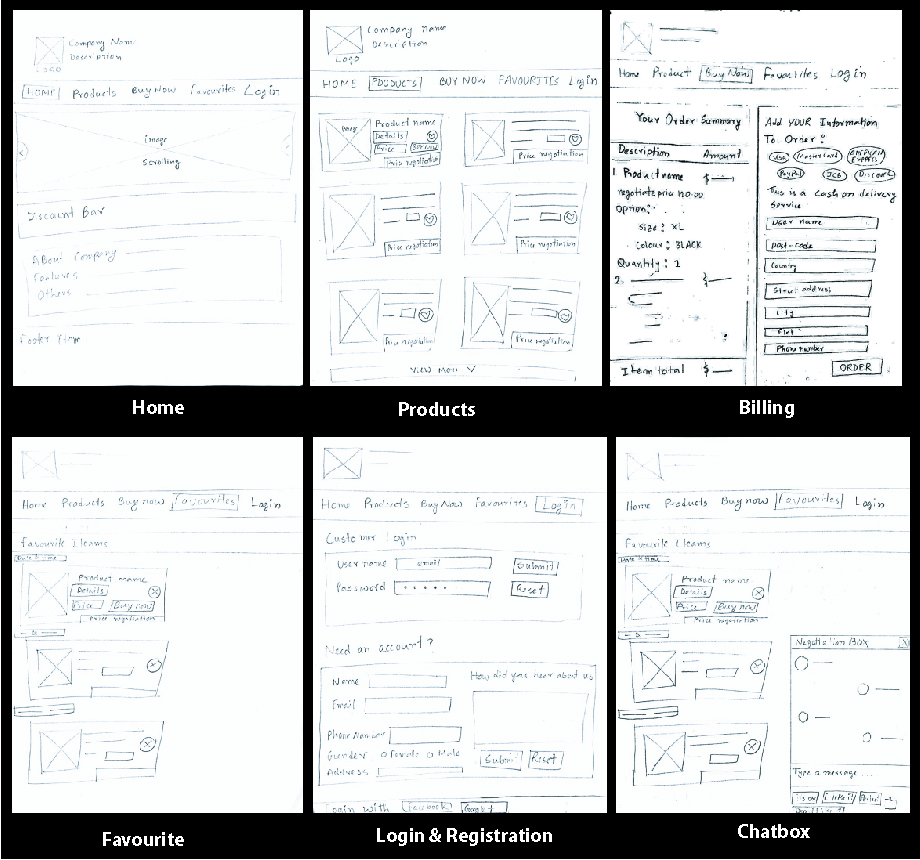 Company Name
Description
LOGO
HOME Products Buy Now Favourites Login
image
scrolling
Discount Bar
About Company
Features
Others
Footer Item
Home
Company Name
Description
LOGO
HOME PRODUCTS BUY NOW FAVOURITES Login
image
Product name
Details
Price Buy now
Price negotiation
Price negotiation
Price negotiation
Price negotiation
Price negotiation
Price negotiation
View More
Products
Home Product Buy Now Favourites Login
Your Order Summary
Description Amount
1. Product name $
negotiate price no.00
Option:
Size : XL
Colour : BLACK
Quantity : 1
2.
Item total $
Add YOUR Information
To Order :
VISA Mastercard American Express
PayPal JCB Discover
This is a Cash on delivery
Service
User name
post-code
Country
Street address
City
Flat
Phone number
ORDER
Billing
Home Products Buy now Favourites Login
Favourite Iteams
Date & time
Product name
Details
Price Buy now
Price negotiation
Favourite
Home Products Buy Now Favourites Login
Customer Login
User name email Submit
Password Reset
Need an account?
Name
Email
Phone Number
Gender Female Male
Address
How did you hear about us
Submit Reset
Login with Facebook Google
Login & Registration
Home Products Buy now Favourites Login
Favourite Iteams
Date & time
Product name
Details
Price Buy now
Price negotiation
Negotiation Box X
Type a message ...
Chatbox